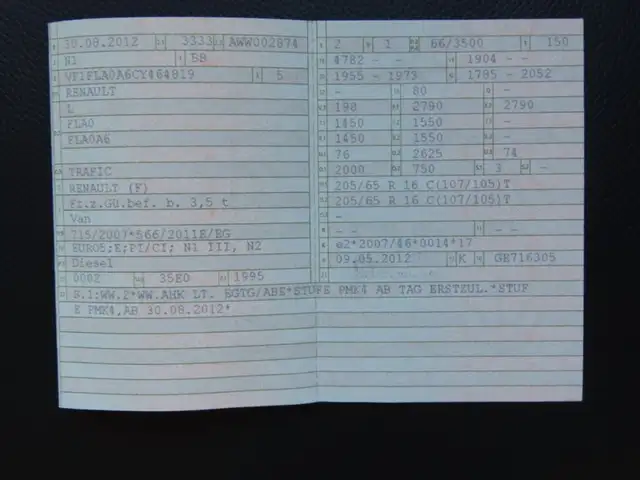 30.08.2012 3333 AWW002874
N1 BB
VF1FLA0A6CY464819 5
RENAULT
L
FLA0
FLA0A6
TRAFIC
RENAULT (F)
Fz.z.Gü.bef. b. 3,5 t
Van
715/2007*566/2011E/EG
EURO5;E;PI/CI; N1 III, N2
Diesel
0002 35E0 1995
2 1 66/3500 150
4782 - - 1904 - -
1955 - 1973 1785 - 2052
- 80 -
198 2790 2790
1450 1550 -
1450 1550 -
76 2625 74
2000 750 3 -
205/65 R 16 C(107/105)T
205/65 R 16 C(107/105)T
-
- - - -
e2*2007/46*0014*17
09.05.2012 K GE716305
S.1:WW.2*WW.AHK LT. EGTG/ABE*STUFE PMK4 AB TAG ERSTZUL.*STUF
E PMK4,AB 30.08.2012*